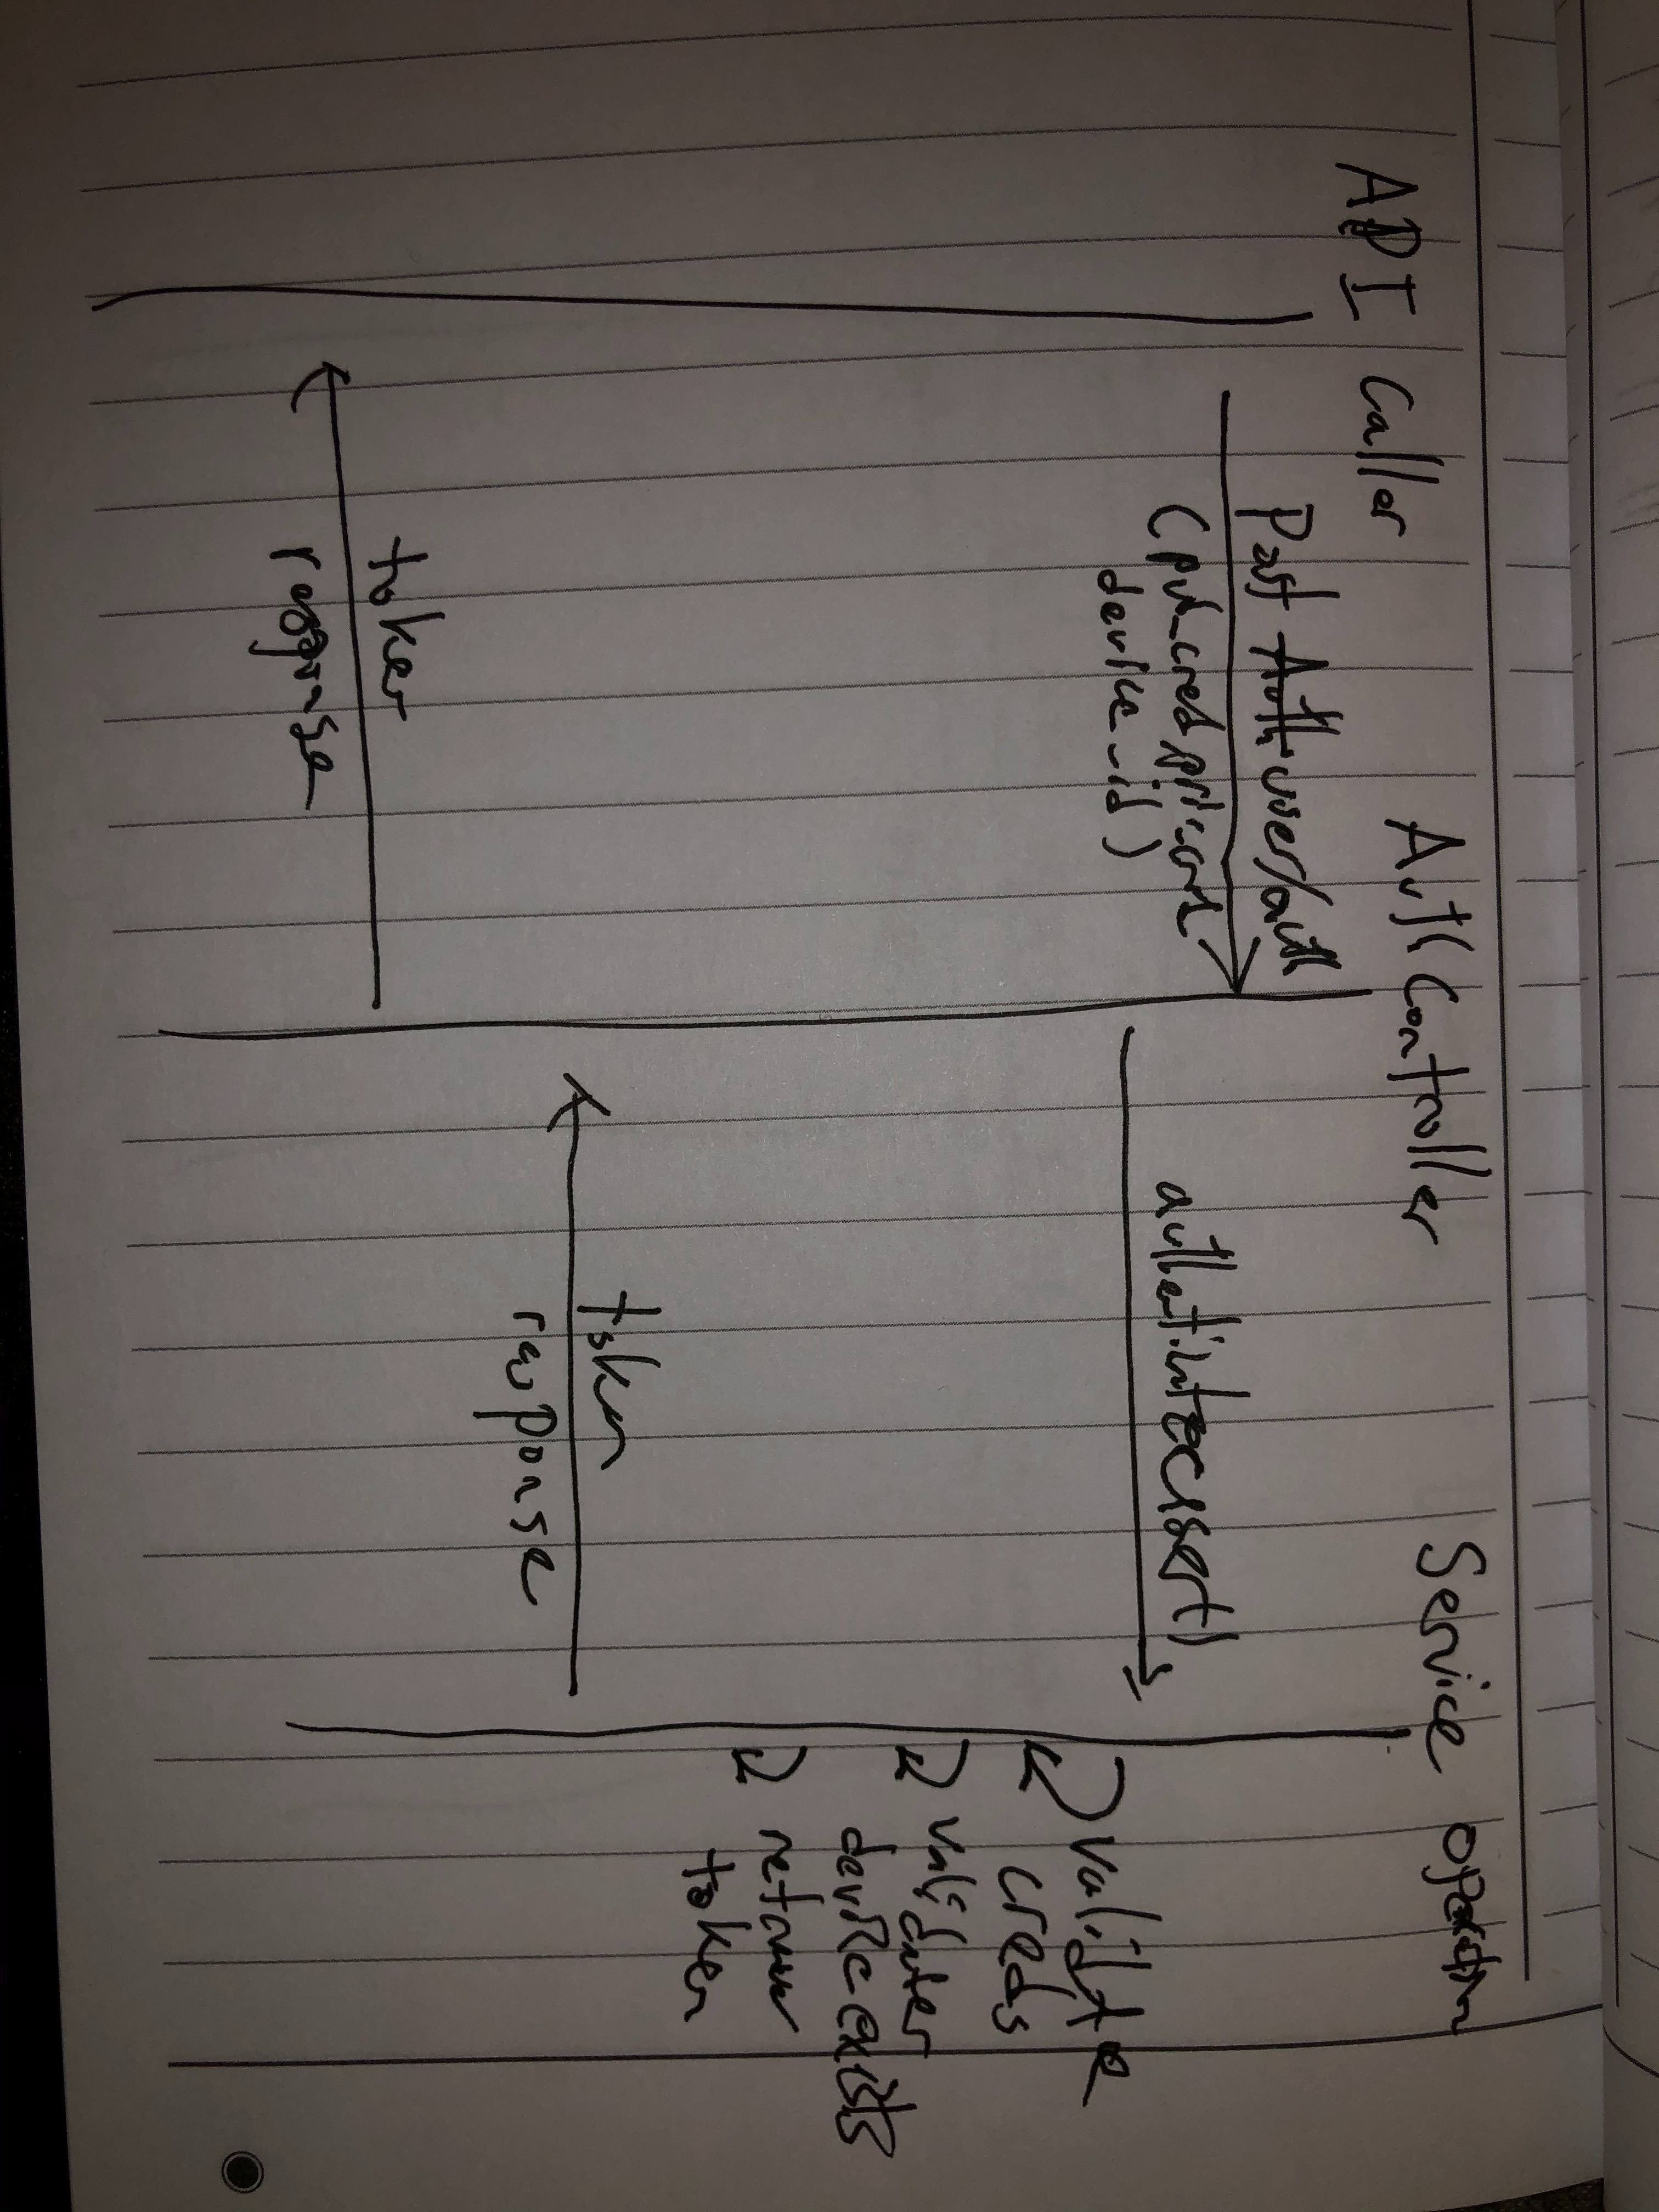 API Caller
Auth Controller
Service
Post user/auth
(pub_cred, pri_cred
device_id)
authenticateUser()
validate
creds
device exists
token
token
response
token
response